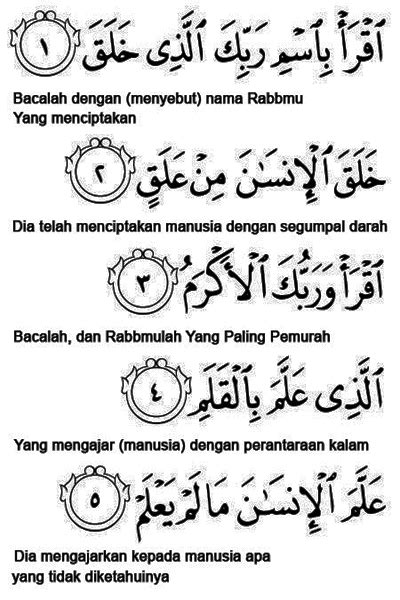 ٱقْرَأْ بِٱسْمِ رَبِّكَ ٱلَّذِى خَلَقَ ١
Bacalah dengan (menyebut) nama Rabbmu
Yang menciptakan
خَلَقَ ٱلْإِنسَـٰنَ مِنْ عَلَقٍ ٢
Dia telah menciptakan manusia dengan segumpal darah
ٱقْرَأْ وَرَبُّكَ ٱلْأَكْرَمُ ٣
Bacalah, dan Rabbmulah Yang Paling Pemurah
ٱلَّذِى عَلَّمَ بِٱلْقَلَمِ ٤
Yang mengajar (manusia) dengan perantaraan kalam
عَلَّمَ ٱلْإِنسَـٰنَ مَا لَمْ يَعْلَمْ ٥
Dia mengajarkan kepada manusia apa
yang tidak diketahuinya